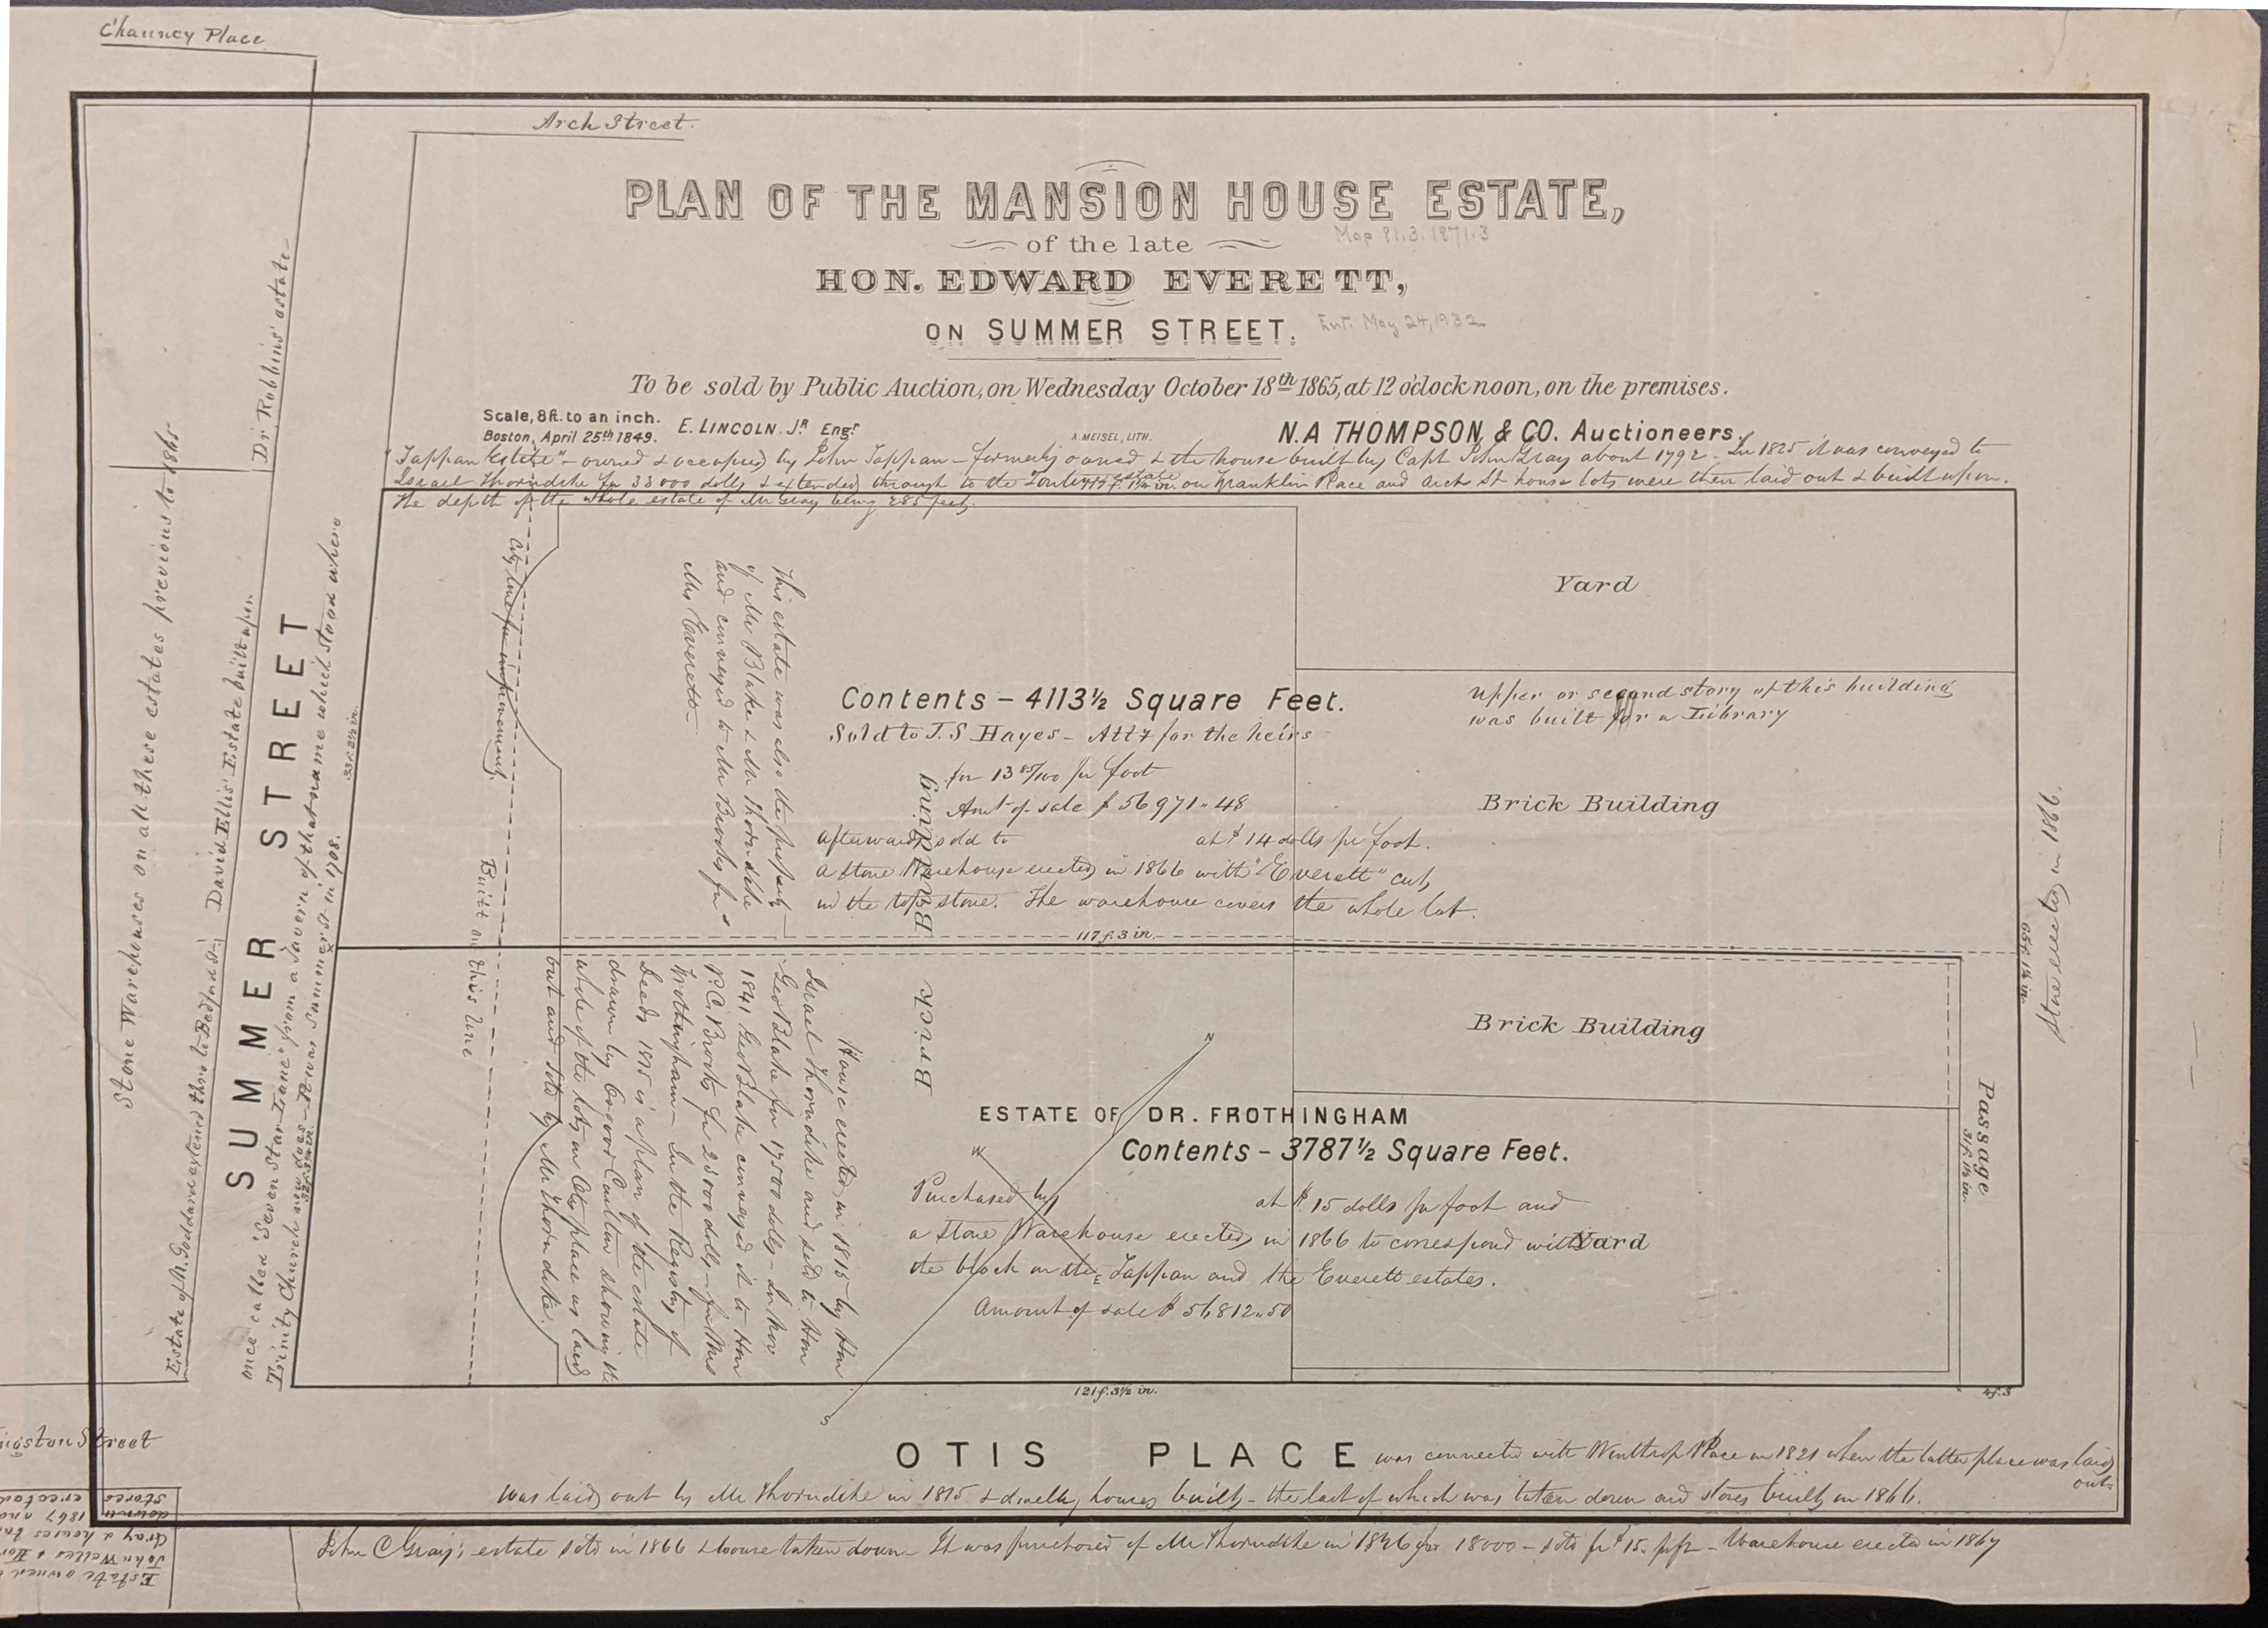 Chauncy Place
Arch Street.
PLAN OF THE MANSION HOUSE ESTATE,
of the late
Map 81.3.1871.3
HON. EDWARD EVERETT,
ON SUMMER STREET.
Ent. May 24, 1932
To be sold by Public Auction, on Wednesday October 18th 1865, at 12 o'clock noon, on the premises.
Scale, 8ft. to an inch.
Boston, April 25th 1849.
E. LINCOLN. JR Engr
A. MEISEL, LITH.
N.A THOMPSON & CO. Auctioneers.
"Tappan Estate" - owned & occupied by John Tappan - formerly owned & the house built by Capt John Gray about 1792 - In 1825 it was conveyed to
Israel Thorndike for 33000 dolls & extended through to the Tontine estate on Franklin Place and Arch St house lots were then laid out & built upon.
117 f. 1¼ in.
The depth of the whole estate of Mr Gray being 285 feet.
Dr. Robbins' estate
Stone Warehouses on all these estates previous to 1865
David Ellis' Estate built upon
Estate of N. Goddard extended thro to Bedford St
SUMMER STREET
once called "Seven Star Lane" from a Tavern of that name which stood where
Trinity Church now does - It was Summer St in 1708.
33 f. 2½ in.
32 f. 3¼ in.
City line for improvement.
Built on this line
This estate was also the property
of Mr Blake & Mr Thorndike
and conveyed to Mr Brooks for
Mrs Everett -
Yard
Contents - 4113½ Square Feet.
Sold to J. S Hayes - Atty for the heirs
for 13 85/100 pr foot
Amt of sale $ 56971.48
Afterwards sold to at $ 14 dolls pr foot.
a stone Warehouse erected in 1866 with "Everett" cut
in the top stone. The warehouse covers the whole lot.
Upper or second story of this building
was built for a Library
Brick Building
Brick Building
117 f. 3 in.
65 f. 1¼ in.
Store erected in 1866.
House erected in 1815 by Hon
Israel Thorndike and sold to Hon
Geo Blake for 17500 dolls - In Nov
1841 Geo Blake conveyed it to Hon
P. C. Brooks for 25000 dolls - for Mrs
Frothingham - In the Registry of
Deeds 1815 is a plan of the estate
drawn by Osgood Carlton showing the
whole of the lots in Otis place as laid
out and sold by Mr Thorndike.
Brick Building
N
W
E
S
ESTATE OF DR. FROTHINGHAM
Contents - 3787½ Square Feet.
Purchased by at $ 15 dolls pr foot and
a stone Warehouse erected in 1866 to correspond with
the block on the Tappan and the Everett estates.
Amount of sale $ 56812.50
Yard
Passage
31 f. 1¼ in.
121 f. 3½ in.
4 f. 3
OTIS PLACE was connected with Winthrop Place in 1821 when the latter place was laid
out
was laid out by Mr Thorndike in 1815 & dwelling houses built - the last of which was taken down and stores built in 1866.
John C Gray's estate sold in 1866 & house taken down - It was purchased of Mr Thorndike in 1826 for 18000 - sold for $ 15. pr ft - Warehouse erected in 1867
ngston Street
Estate owned
John Welles & Hon
Gray & houses
down 1867 and
stores erected